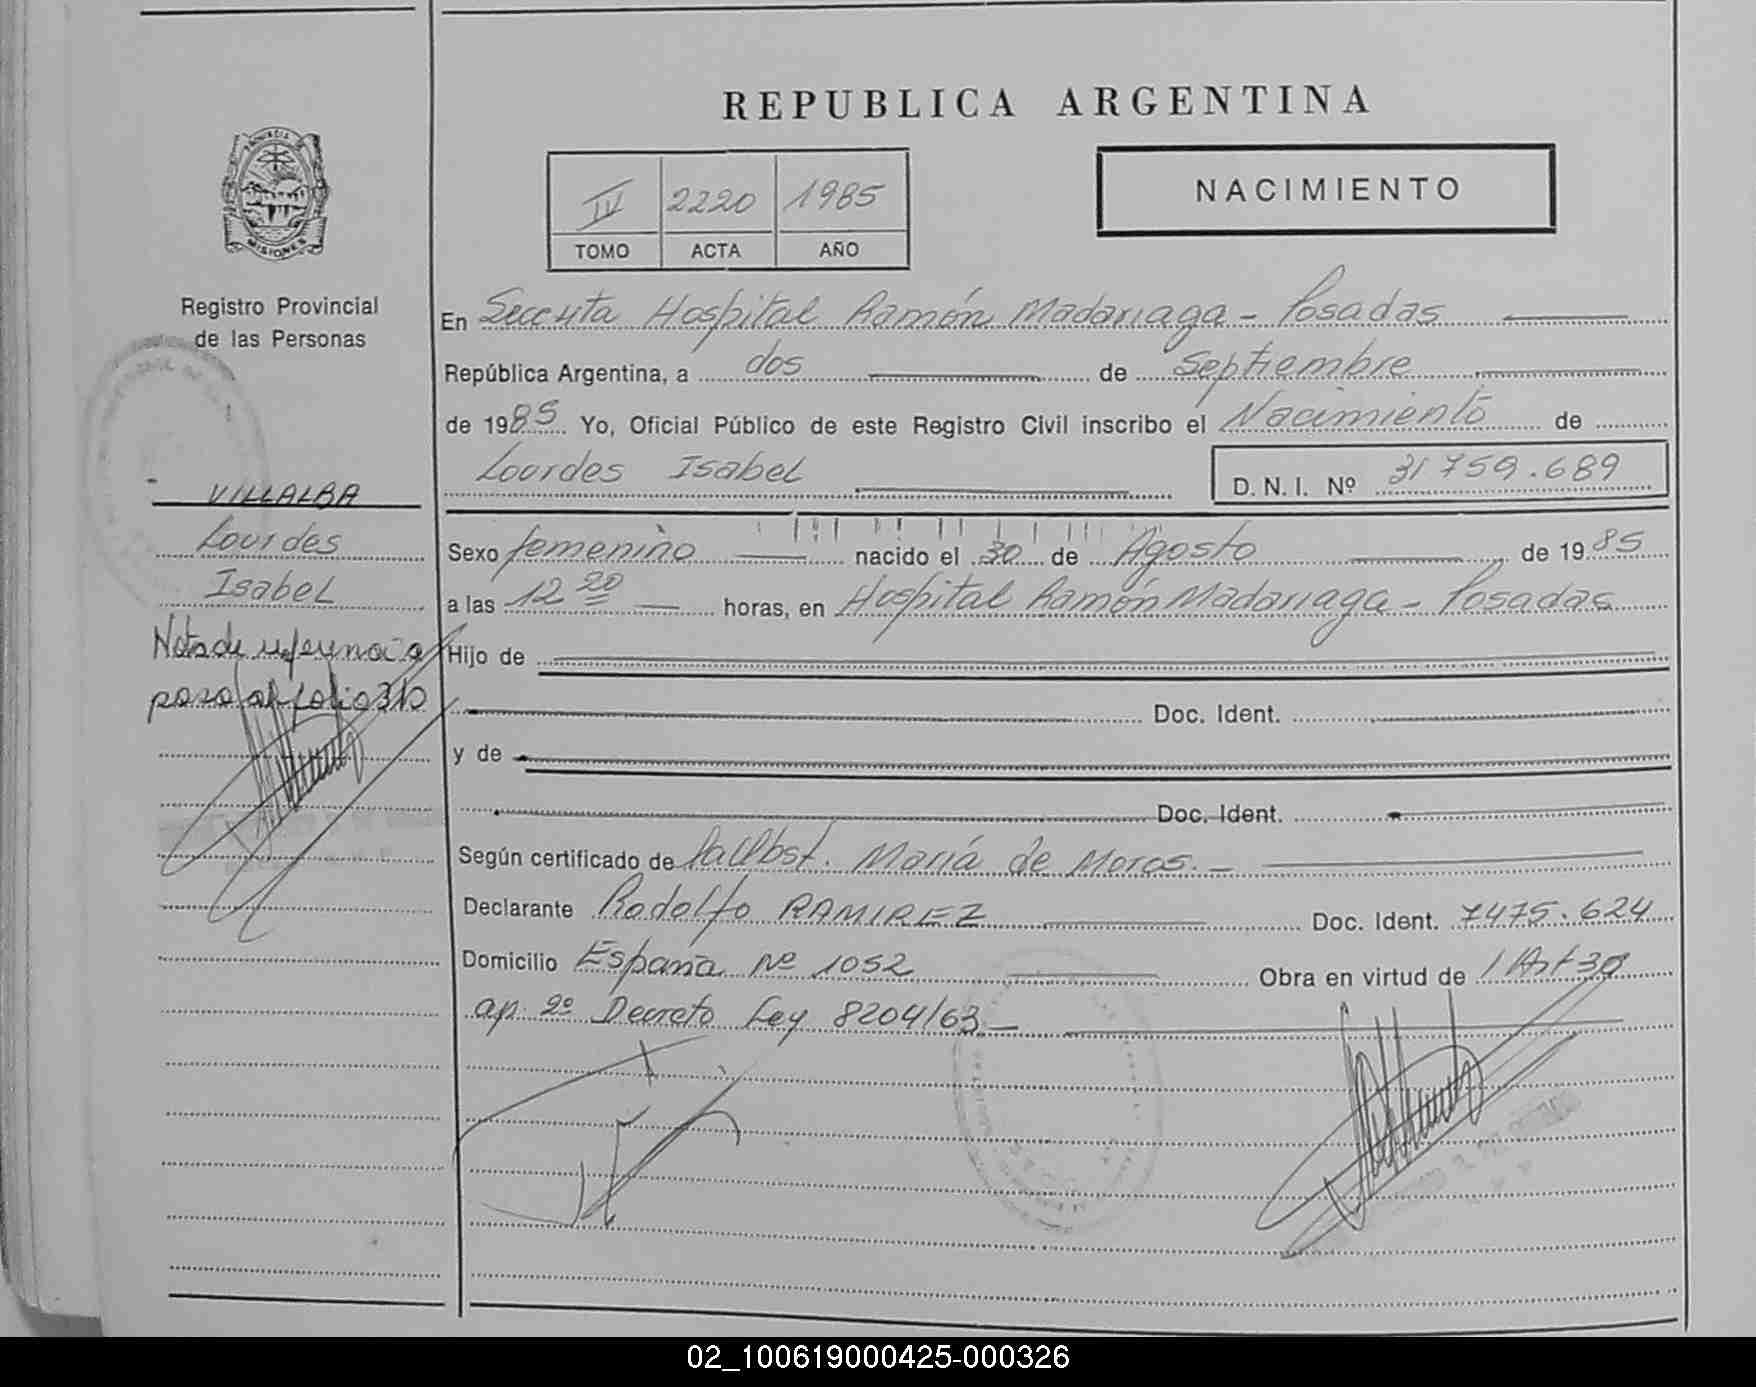 REPUBLICA ARGENTINA
PROVINCIA DE
MISIONES
IV 2220 1985
TOMO ACTA AÑO
NACIMIENTO
Registro Provincial
de las Personas
VILLALBA
Lourdes
Isabel
Nota de referencia
pasa al folio 310
En Secc 4ta Hospital Ramón Madariaga - Posadas
República Argentina, a dos de Septiembre
de 1985 Yo, Oficial Público de este Registro Civil inscribo el Nacimiento de
Lourdes Isabel D. N. I. Nº 31 759.689
Sexo femenino nacido el 30 de Agosto de 1985
a las 12 20 horas, en Hospital Ramón Madariaga - Posadas
Hijo de
Doc. Ident.
y de
Doc. Ident.
Según certificado de María de Moros.-
Declarante Rodolfo RAMIREZ Doc. Ident. 7475.624
Domicilio España Nº 1052 Obra en virtud de Art 30
ap. 2º Decreto Ley 8204/63
02_100619000425-000326